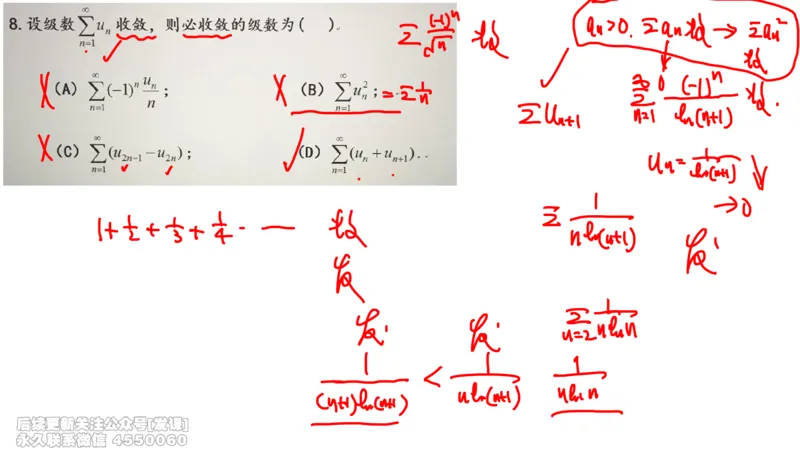 8. 设级数 $\sum_{n=1}^{\infty} u_n$ 收敛, 则必收敛的级数为( ).
(A) $\sum_{n=1}^{\infty} (-1)^n \frac{u_n}{n}$; (B) $\sum_{n=1}^{\infty} u_n^2$; $= \sum \frac{1}{n}$
(C) $\sum_{n=1}^{\infty} (u_{2n-1} - u_{2n})$; (D) $\sum_{n=1}^{\infty} (u_n + u_{n+1})$..
$\sum \frac{(-1)^n}{\sqrt{n}}$ 收
$a_n > 0. \sum a_n$ 收 $\to \sum a_n^2$
收
$\sum u_{n+1}$
$\sum_{n=1}^{\infty} \frac{(-1)^n}{\ln(n+1)}$ 收.
$u_n = \frac{1}{\ln(n+1)}$
$\to 0$
$\sum \frac{1}{n \ln(n+1)}$ 发
$1 + \frac{1}{2} + \frac{1}{3} + \frac{1}{4} \cdots$
收
发
发 发 $\sum_{n=2} \frac{1}{n \ln n}$
$\frac{1}{(n+1)\ln(n+1)} < \frac{1}{n \ln(n+1)}$ $\frac{1}{n \ln n}$
后续更新关注公众号[发课]
永久联系微信 4550060